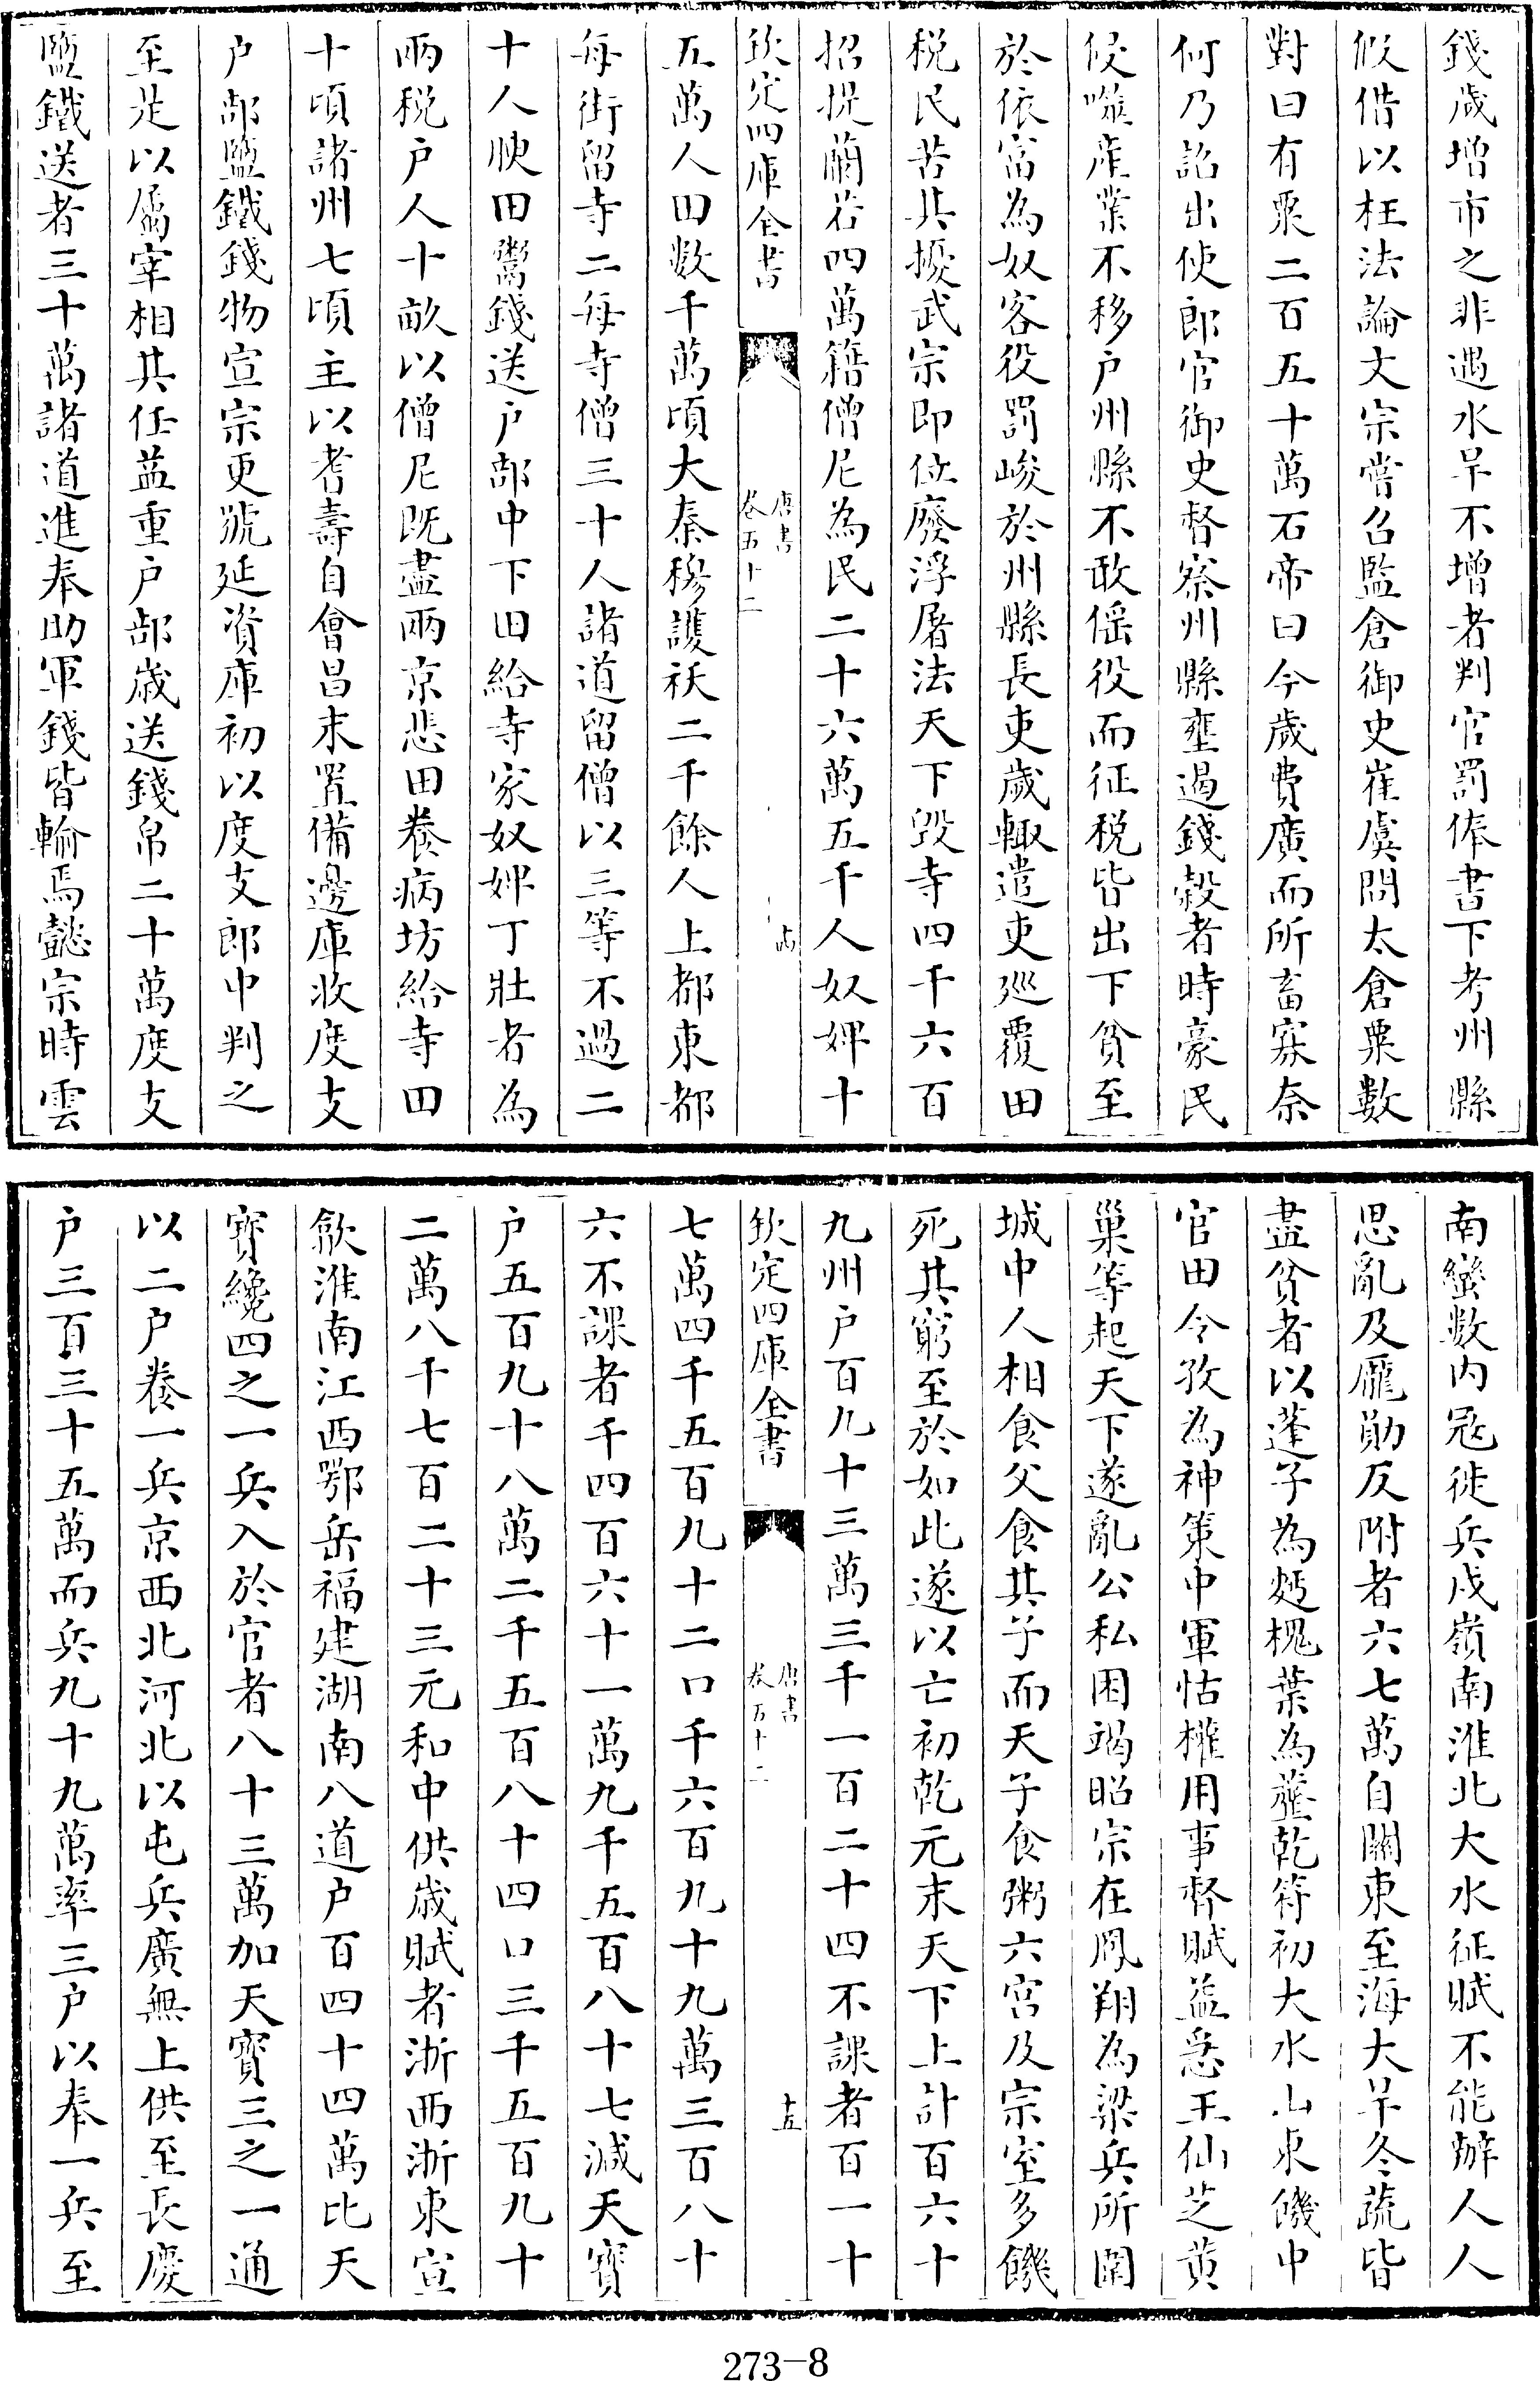 錢歲增市之非遇水旱不增者判官罰俸書下考州縣
假借以枉法論文宗嘗召監倉御史崔虞問太倉粟數
對曰有粟二百五十萬石帝曰今歲費廣而所畜寡奈
何乃詔出使郎官御史督察州縣壅遏錢穀者時豪民
侵噬產業不移户州縣不敢傜役而征税皆出下貧至
於依富為奴客役罰峻於州縣長吏歲輙遣吏巡覆田
税民苦其擾武宗即位廢浮屠法天下毁寺四千六百
招提蘭若四萬籍僧尼為民二十六萬五千人奴婢十
欽定四庫全書
唐書
卷五十二
十四
五萬人田數千萬頃大秦穆護祅二千餘人上都東都
每街留寺二每寺僧三十人諸道留僧以三等不過二
十人腴田鬻錢送户部中下田給寺家奴婢丁壯者為
兩税户人十畝以僧尼既盡兩京悲田養病坊給寺田
十頃諸州七頃主以耆壽自會昌末置備邊庫收度支
户部鹽鐵錢物宣宗更號延資庫初以度支郎中判之
至是以屬宰相其任益重户部歲送錢帛二十萬度支
鹽鐵送者三十萬諸道進奉助軍錢皆輸焉懿宗時雲
南蠻數内冦徙兵戍嶺南淮北大水征賦不能辦人人
思亂及龐勛反附者六七萬自關東至海大旱冬蔬皆
盡貧者以蓬子為麪槐葉為虀乾符初大水山東饑中
官田令孜為神策中軍怙權用事督賦益急王仙芝黄
巢等起天下遂亂公私困竭昭宗在鳳翔為梁兵所圍
城中人相食父食其子而天子食粥六宫及宗室多饑
死其窮至於如此遂以亡初乾元末天下上計百六十
九州户百九十三萬三千一百二十四不課者百一十
欽定四庫全書
唐書
卷五十二
十五
七萬四千五百九十二口千六百九十九萬三百八十
六不課者千四百六十一萬九千五百八十七減天寶
户五百九十八萬二千五百八十四口三千五百九十
二萬八千七百二十三元和中供歲賦者浙西浙東宣
歙淮南江西鄂岳福建湖南八道户百四十四萬比天
寶纔四之一兵入於官者八十三萬加天寶三之一通
以二户養一兵京西北河北以屯兵廣無上供至長慶
户三百三十五萬而兵九十九萬率三户以奉一兵至
273-8